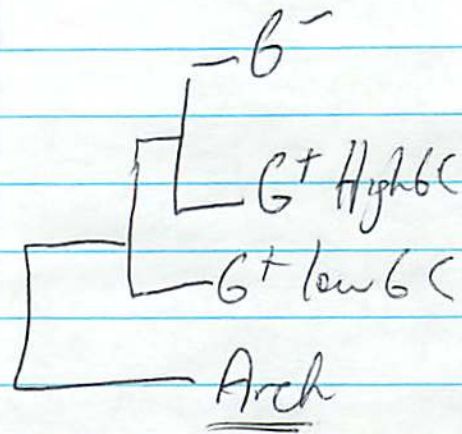 G⁻
G⁺ High GC
G⁺ low GC
Arch